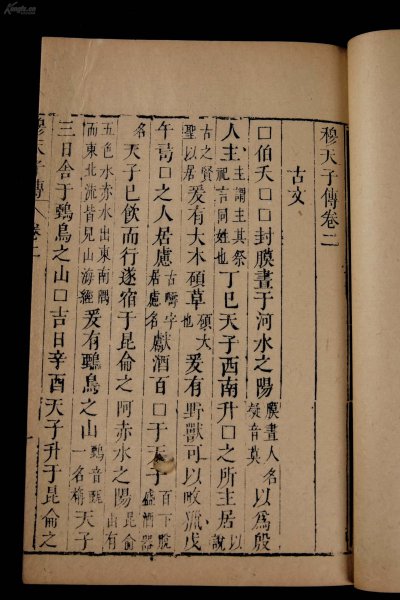 穆天子傳卷二
古文
口伯夭口口封膜晝于河水之陽膜晝人名疑音莫以為殷
人主主謂主其祭祀言同姓也丁巳天子西南升口之所主居以說
古之賢聖以居爰有大木碩草碩大也爰有野獸可以畋獵戊
午口之人居慮古疇字居慮名獻酒百口于天子百下脫盛酒器
名天子已飲而行遂宿于昆侖之阿赤水之陽昆侖山有
五色水赤水出東南隅而東北流皆見山海經爰有鶠鳥之山鶠音一名天子
三日舍于鶠鳥之山口吉日辛酉天子升于昆侖之
穆天子傳 卷二